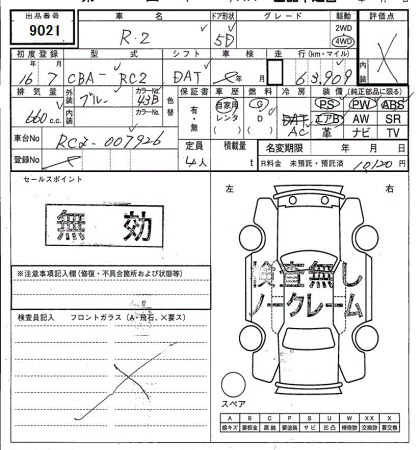 出品番号 車名 ドア形状 グレード 駆動 評価点
9021 R-2 5D 2WD 4WD
初度登録 型式 シフト 車検 走行(km・マイル) 内装
16年 7月 CBA- RC2 DAT 年 月 63,909
排気量 外装 カラーNo. 色替 保証書 車歴 燃料 冷房 装備(純正部品に限る)
660c.c. ブルー 43B 有・無 自家用 G DAT PS PW ABS
内装 カラーNo. レンタ D AC エアB AW SR
( ) ( ) 革 ナビ TV
車台No RC2-007926 定員 積載量 名変期限 年 月 日
登録No 4人 t R料金 未預託・預託済 10,120円
セールスポイント
無効
左 右
※注意事項記入欄(修復・不具合箇所および状態等)
検査無し
ノークレーム
検査員記入 フロントガラス(A・飛石、×要ス)
スペア
A B C P S U W XX X
線キズ 要板金 腐蝕 要塗装 サビ 凹凸 補修跡 交換跡 要交換